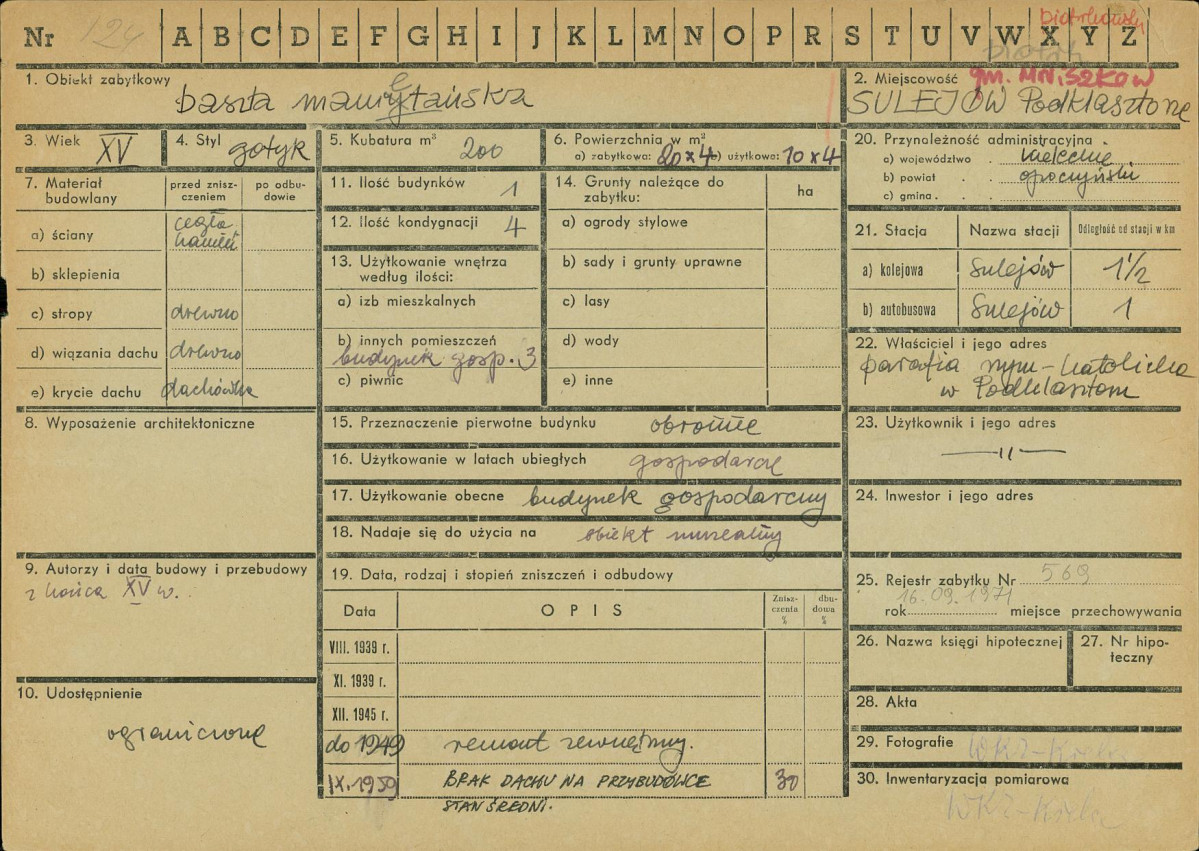 Piotrkowski
Nr 124 A B C D E F G H I J K L M N O P R S T U V W X Y Z
1. Obiekt zabytkowy
baszta mauretańska
2. Miejscowość gm. MNISZKÓW
SULEJÓW Podklasztorze
3. Wiek XV
4. Styl gotyk
5. Kubatura m³ 200
6. Powierzchnia w m²
a) zabytkowa: 20x4 b) użytkowe: 10x4
20. Przynależność administracyjna
a) województwo . kieleckie
b) powiat . . opoczyński
c) gmina . . .
7. Materiał budowlany
przed zniszczeniem
po odbudowie
a) ściany cegła kamień
b) sklepienia
c) stropy drewno
d) wiązania dachu drewno
e) krycie dachu dachówka
8. Wyposażenie architektoniczne
9. Autorzy i data budowy i przebudowy
z końca XV w.
10. Udostępnienie
ograniczone
11. Ilość budynków 1
12. Ilość kondygnacji 4
13. Użytkowanie wnętrza
według ilości:
a) izb mieszkalnych
b) innych pomieszczeń
budynek gosp. 3
c) piwnic
14. Grunty należące do
zabytku:
ha
a) ogrody stylowe
b) sady i grunty uprawne
c) lasy
d) wody
e) inne
15. Przeznaczenie pierwotne budynku obronne
16. Użytkowanie w latach ubiegłych gospodarcze
17. Użytkowanie obecne budynek gospodarczy
18. Nadaje się do użycia na obiekt muzealny
19. Data, rodzaj i stopień zniszczeń i odbudowy
Data OPIS Zniszczenia % dbudowa %
VIII. 1939 r.
XI. 1939 r.
XII. 1945 r.
do 1949 remont zewnętrzny.
IX.1959 BRAK DACHU NA PRZYBUDÓWCE 30
STAN ŚREDNI.
21. Stacja Nazwa stacji Odległość od stacji w km
a) kolejowa Sulejów 1 1/2
b) autobusowa Sulejów 1
22. Właściciel i jego adres
parafia rzym-katolicka
w Podklasztorzu
23. Użytkownik i jego adres
—"—
24. Inwestor i jego adres
25. Rejestr zabytku Nr 569
16.09.1971
rok miejsce przechowywania
26. Nazwa księgi hipotecznej
27. Nr hipoteczny
28. Akta
29. Fotografie WKZ-
30. Inwentaryzacja pomiarowa
WKZ-